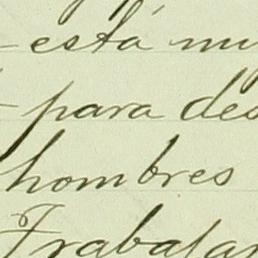 está mu
para des
hombres
Trabajar